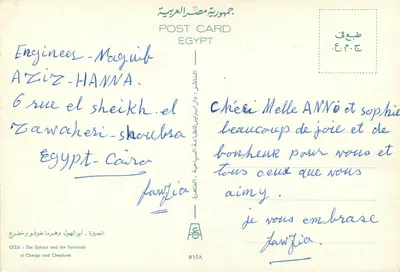 جمهورية مصر العربية
POST CARD
EGYPT
طبع في
ج.م.ع
Engineer - Naguib
AZIZ - HANNA.
6 rue el sheikh. el
Zawaheri - shoubra
Egypt - Cairo
fawzia
Chéri Melle ANNé et sophie
beaucoup de joie et de
bonheur pour vous et
tous ceux que vous
aimy.
je vous embrase
fawzia.
الجيزة - أبو الهول وهرما خوفو وخفرع
GIZA - The Sphinx and the Pyramids
of Cheops and Chephren
٥١٤٨